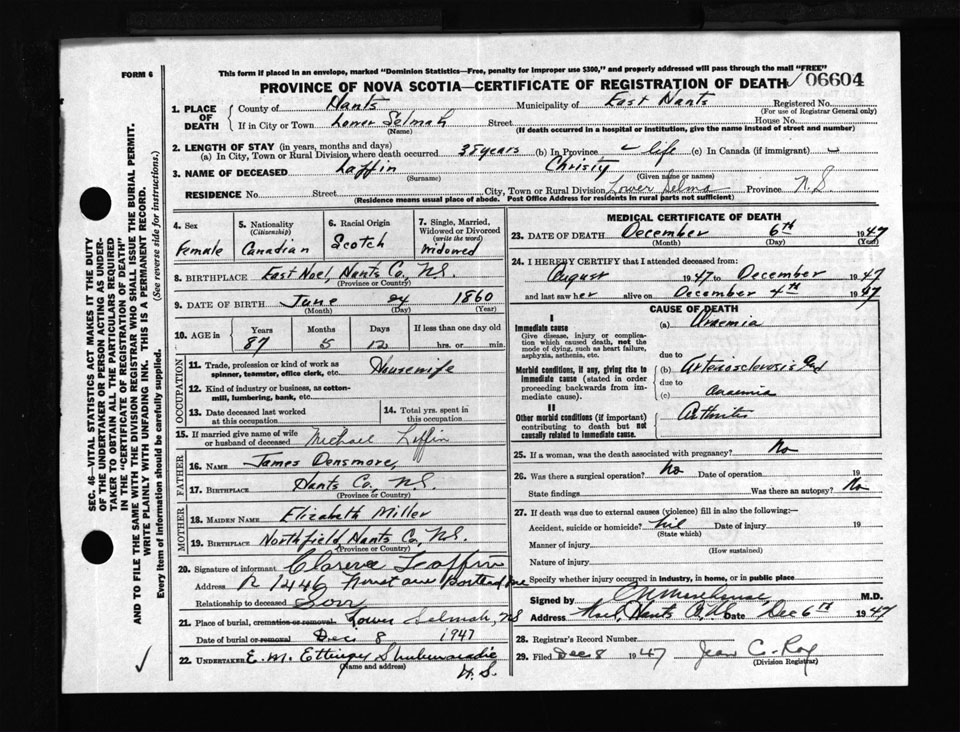 FORM 6
This form if placed in an envelope, marked "Dominion Statistics—Free, penalty for improper use $300," and properly addressed will pass through the mail "FREE"
PROVINCE OF NOVA SCOTIA—CERTIFICATE OF REGISTRATION OF DEATH 06604
1. PLACE OF DEATH County of Hants Municipality of East Hants Registered No.
(For use of Registrar General only)
If in City or Town Lower Selmah Street House No.
(Name) (If death occurred in a hospital or institution, give the name instead of street and number)
2. LENGTH OF STAY (in years, months and days)
(a) In City, Town or Rural Division where death occurred 35 years (b) In Province life (c) In Canada (if immigrant)
3. NAME OF DECEASED Laffin Christy
(Surname) (Given name or names)
RESIDENCE No. Street City, Town or Rural Division Lower Selma Province N.S
(Residence means usual place of abode. Post Office Address for residents in rural parts not sufficient)
4. Sex
Female
5. Nationality
(Citizenship)
Canadian
6. Racial Origin
Scotch
7. Single, Married, Widowed or Divorced
(write the word)
Widowed
8. BIRTHPLACE East Noel, Hants Co, N.S.
(Province or Country)
9. DATE OF BIRTH June 24 1860
(Month) (Day) (Year)
10. AGE in Years Months Days If less than one day old
87 5 12 hrs. or min.
OCCUPATION
11. Trade, profession or kind of work as spinner, teamster, office clerk, etc. Housewife
12. Kind of industry or business, as cotton-mill, lumbering, bank, etc.
13. Date deceased last worked at this occupation
14. Total yrs. spent in this occupation
15. If married give name of wife or husband of deceased Michael Laffin
FATHER
16. NAME James Densmore,
17. BIRTHPLACE Hants Co. N.S.
(Province or Country)
MOTHER
18. MAIDEN NAME Elizabeth Miller
19. BIRTHPLACE Northfield Hants Co, N.S.
(Province or Country)
20. Signature of informant Laffin
Address
Relationship to deceased Son
21. Place of burial, cremation or removal Lower Selmah, NS
Date of burial or removal Dec 8 1947
22. UNDERTAKER E. M. Ettinger Shubenacadie
(Name and address) N.S.
MEDICAL CERTIFICATE OF DEATH
23. DATE OF DEATH December 6th 1947
(Month) (Day) (Year)
24. I HEREBY CERTIFY that I attended deceased from:
August 1947 to December 1947
and last saw her alive on December 4th 1947
CAUSE OF DEATH
I
Immediate cause
Give disease, injury or complication which caused death, not the mode of dying, such as heart failure, asphyxia, asthenia, etc.
(a) Anaemia
due to
Morbid conditions, if any, giving rise to immediate cause (stated in order proceeding backwards from immediate cause).
(b) Arteriosclerosis and
due to
(c) anaemia
II
Other morbid conditions (if important) contributing to death but not causally related to immediate cause.
Arthritis
25. If a woman, was the death associated with pregnancy? No
26. Was there a surgical operation? No Date of operation 19
State findings Was there an autopsy? No
27. If death was due to external causes (violence) fill in also the following:—
Accident, suicide or homicide? Nil Date of injury 19
(State which)
Manner of injury
(How sustained)
Nature of injury
Specify whether injury occurred in industry, in home, or in public place
Signed by M.D.
Address Hants Date Dec 6th 1947
28. Registrar's Record Number
29. Filed Dec 8 1947 Jean C. Roy
(Division Registrar)
SEC. 46—VITAL STATISTICS ACT MAKES IT THE DUTY
OF THE UNDERTAKER OR PERSON ACTING AS UNDER-
TAKER TO OBTAIN ALL THE PARTICULARS REQUIRED
IN THE "CERTIFICATE OF REGISTRATION OF DEATH"
AND TO FILE THE SAME WITH THE DIVISION REGISTRAR WHO SHALL ISSUE THE BURIAL PERMIT.
WRITE PLAINLY WITH UNFADING INK. THIS IS A PERMANENT RECORD.
Every item of information should be carefully supplied. (See reverse side for instructions.)